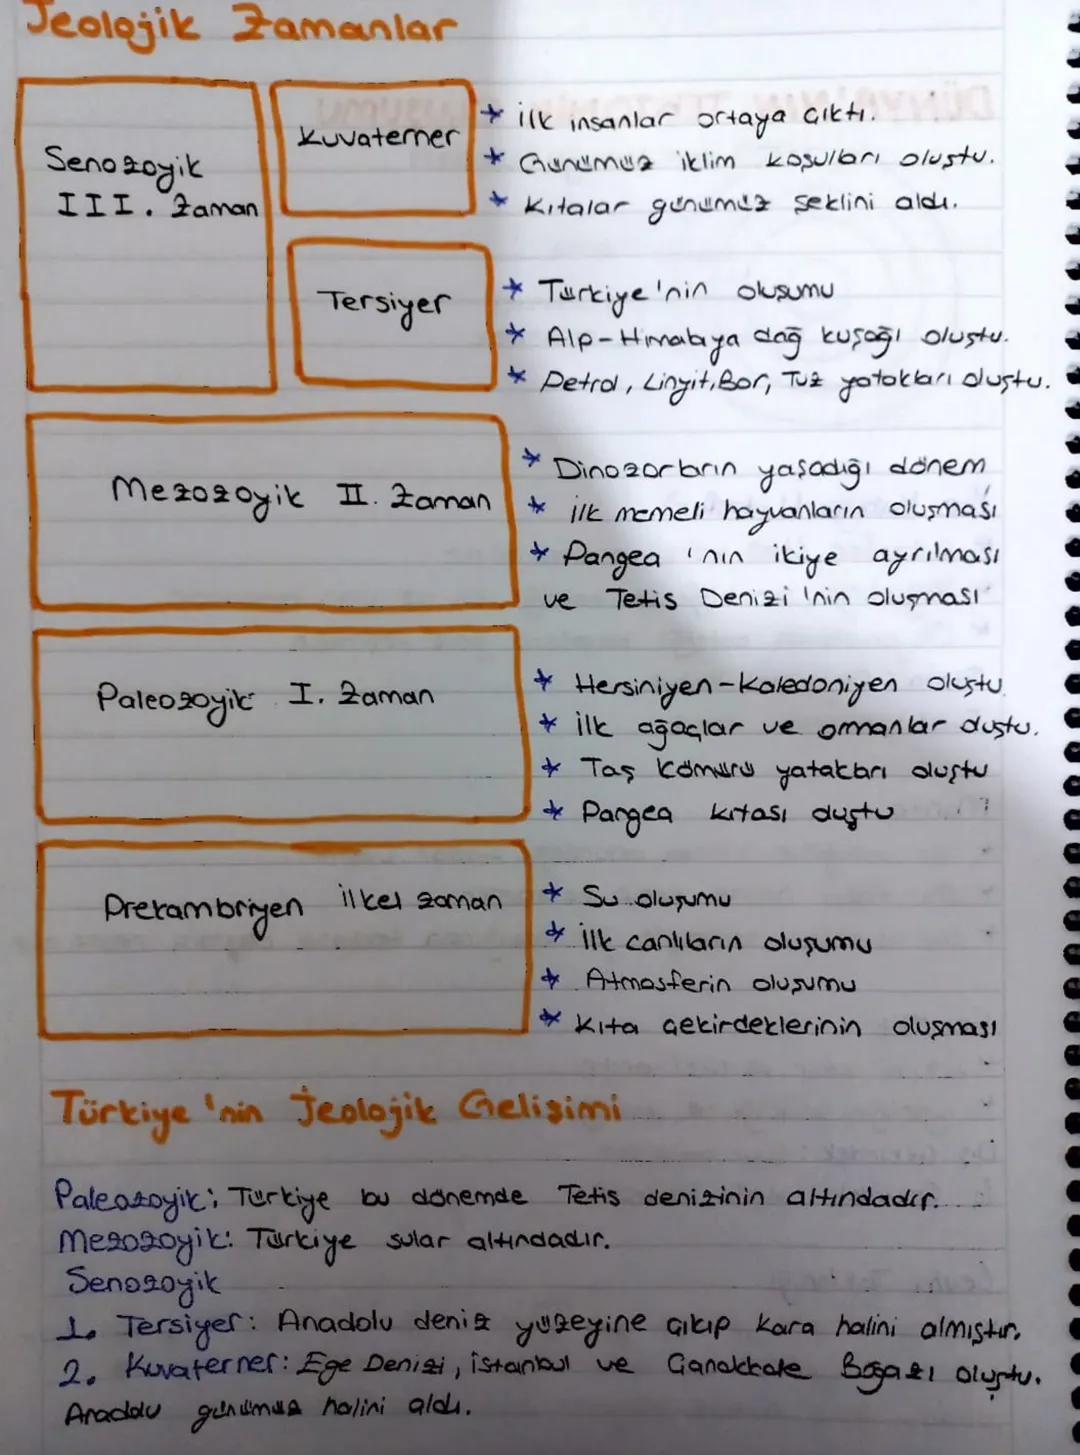 Jeolojik Zamanlar
Senozoyik
III. Zaman
Kuvaterner
* İlk insanlar ortaya çıktı.
* Günümüz iklim koşulları oluştu.
* Kıtalar günümüz şeklini aldı.
Tersiyer
* Türkiye'nin oluşumu
* Alp-Himalaya dağ kuşağı oluştu.
* Petrol, Linyit, Bor, Tuz yatakları oluştu.
Mezozoyik II. Zaman
* Dinozorların yaşadığı dönem
* İlk memeli hayvanların oluşması
* Pangea 'nın ikiye ayrılması
ve Tetis Denizi 'nin oluşması
Paleozoyik I. Zaman
* Hersiniyen-Kaledoniyen oluştu
* İlk ağaçlar ve ormanlar oluştu.
* Taş kömürü yatakları oluştu
* Pangea kıtası oluştu
Prekambriyen ilkel zaman
* Su oluşumu
* İlk canlıların oluşumu
* Atmosferin oluşumu
* Kıta çekirdeklerinin oluşması
Türkiye 'nin Jeolojik Gelişimi
Paleozoyik: Türkiye bu dönemde Tetis denizinin altındadır.
Mezozoyik: Türkiye sular altındadır.
Senozoyik
1. Tersiyer: Anadolu deniz yüzeyine çıkıp kara halini almıştır.
2. Kuvaterner: Ege Denizi, İstanbul ve Çanakkale Boğazı oluştu.
Anadolu günümüz halini aldı.